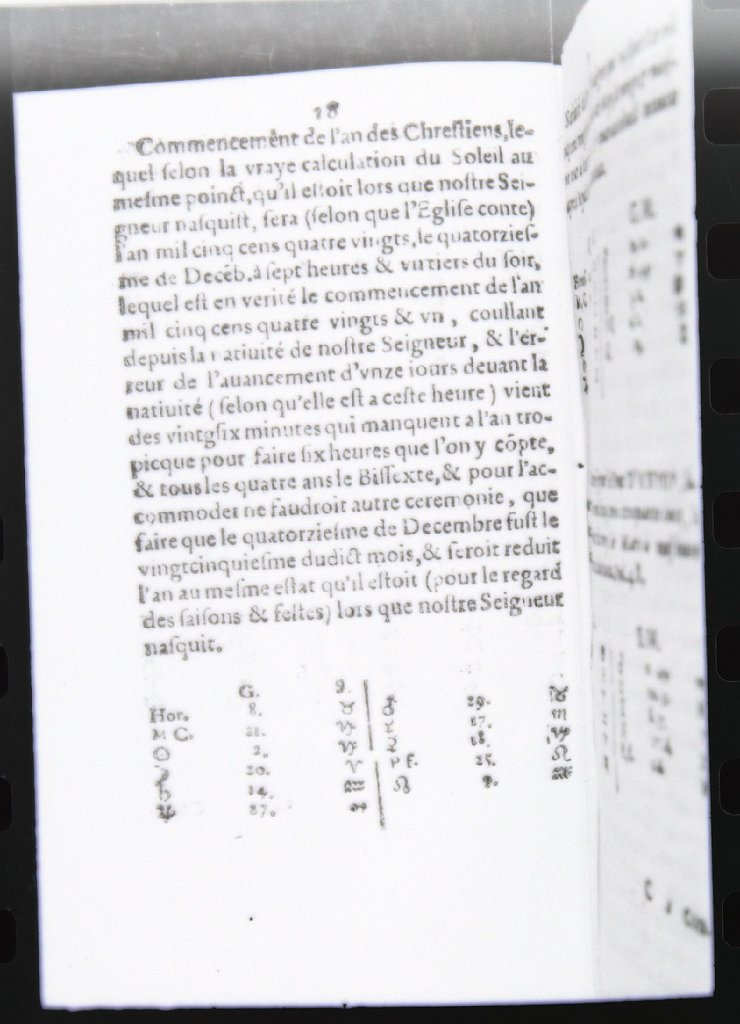 18
Commencement de l'an des Chreſtiens, le-
quel ſelon la vraye calculation du Soleil au
meſme poinct, qu'il eſtoit lors que noſtre Sei-
gneur naſquiſt, ſera (ſelon que l'Egliſe conte)
l'an mil cinq cens quatre vingts, le quatorzieſ-
me de Decēb. à ſept heures & vn tiers du ſoir,
lequel eſt en verité le commencement de l'an
mil cinq cens quatre vingts & vn, coullant
depuis la natiuité de noſtre Seigneur, & l'er-
reur de l'auancement d'vnze iours deuant la
natiuité (ſelon qu'elle eſt a ceſte heure) vient
des vintgſix minutes qui manquent a l'an tro-
picque pour faire ſix heures que l'on y cōpte,
& tous les quatre ans le Biſſexte, & pour l'ac-
commoder ne faudroit autre ceremonie, que
faire que le quatorzieſme de Decembre fuſt le
vingtcinquieſme dudict mois, & ſeroit reduit
l'an au meſme eſtat qu'il eſtoit (pour le regard
des ſaiſons & feſtes) lors que noſtre Seigneur
naſquit.
G. S.
Hor. 8. ♉ ♂ 29. ♉
M C. 21. ♑ 17. ♏
☉ 2. ♑ ♀ 18. ♑
☽ 20. ♈ P F. 25. ♌
♄ 14. ♒ ☊ 9. ♒
27.